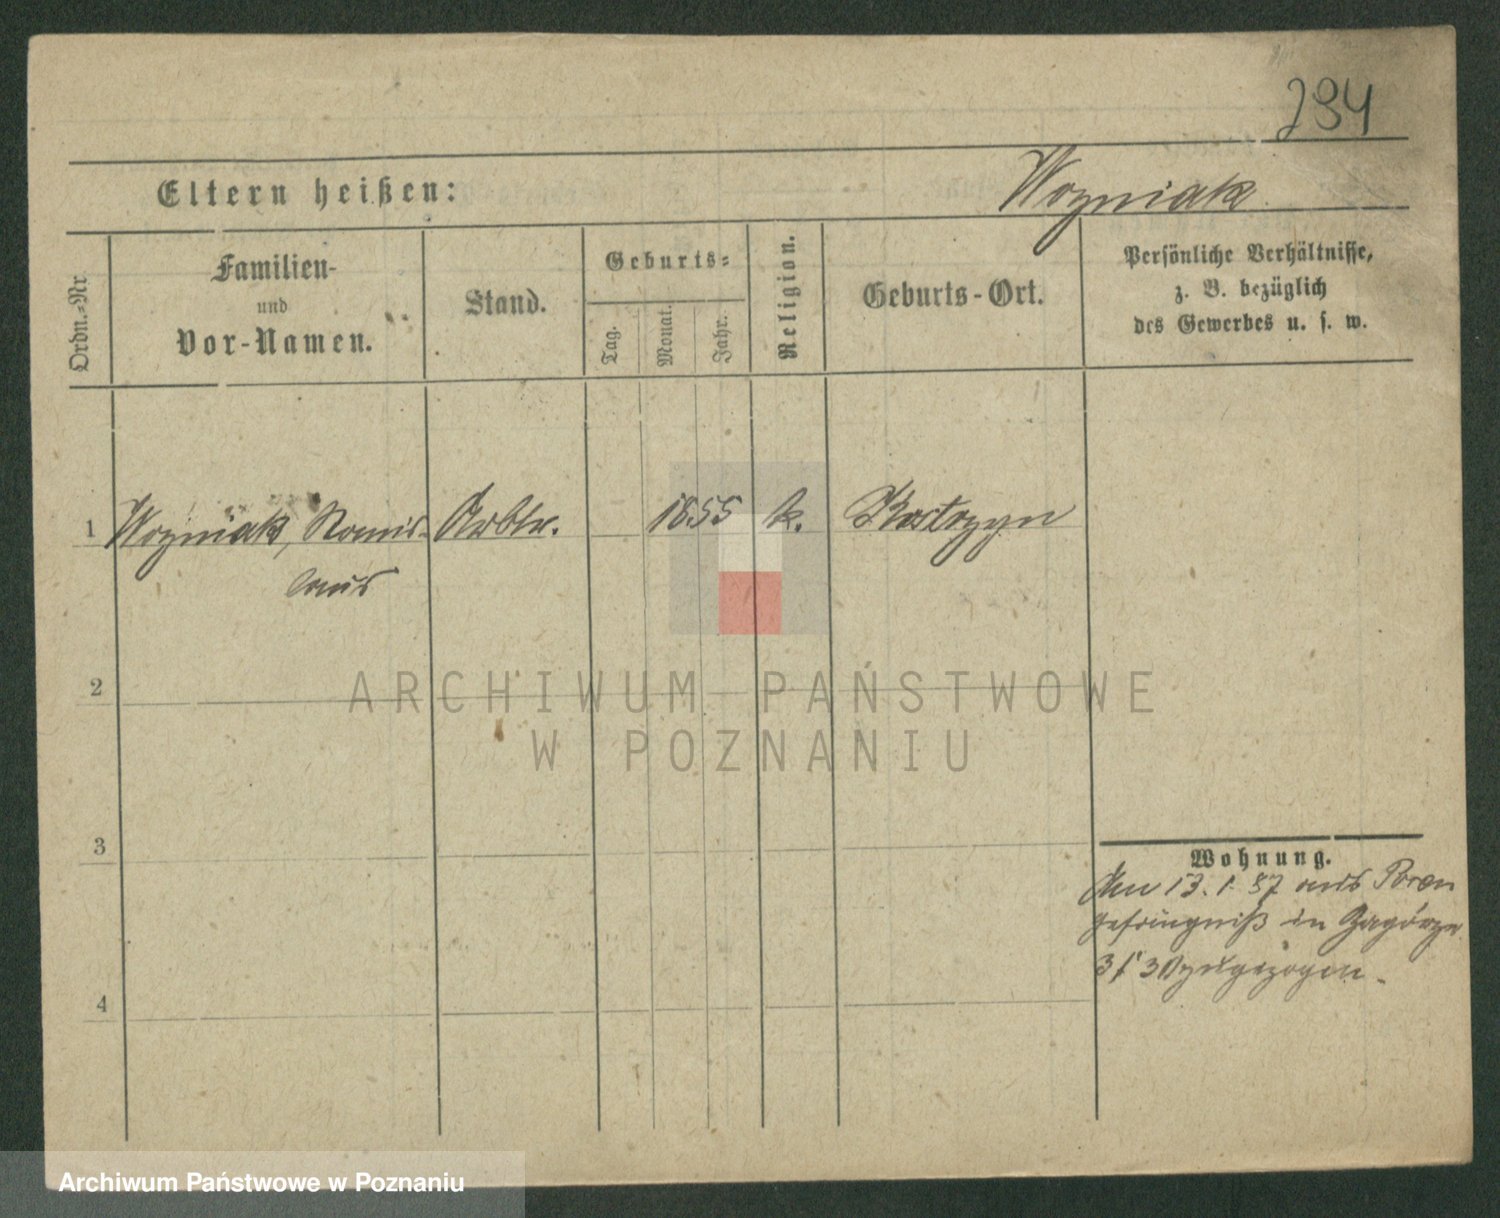 294
Wozniak
Eltern heißen:
Ordn.=Nr.
Familien-
und
Vor-Namen.
Stand.
Geburts=
Tag.
Monat.
Jahr.
Religion.
Geburts-Ort.
Persönliche Verhältnisse,
z. B. bezüglich
des Gewerbes u. s. w.
1 Wozniak, Stanis- Arbtr. 1855 k. Kostrzyn
laus
2
3
4
Wohnung.
13. 1. 87 aus
gefängniß in Zagórze
zugezogen.
ARCHIWUM PAŃSTWOWE
W POZNANIU
Archiwum Państwowe w Poznaniu